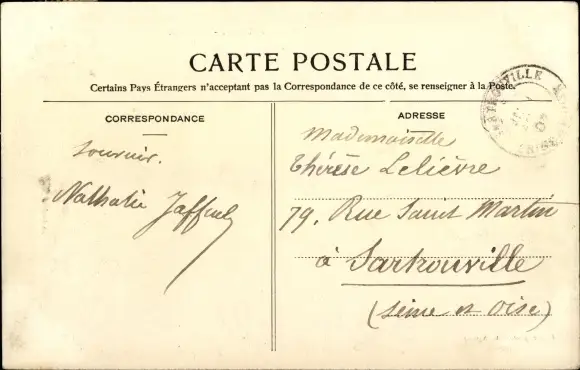 CARTE POSTALE
Certains Pays Étrangers n'acceptant pas la Correspondance de ce côté, se renseigner à la Poste.
CORRESPONDANCE
Souvenir.
Nathalie
ADRESSE
Mademoiselle
Thérèse Lelièvre
79, Rue Saint Martin
à Sartrouville
(Seine et Oise)
SARTROUVILLE